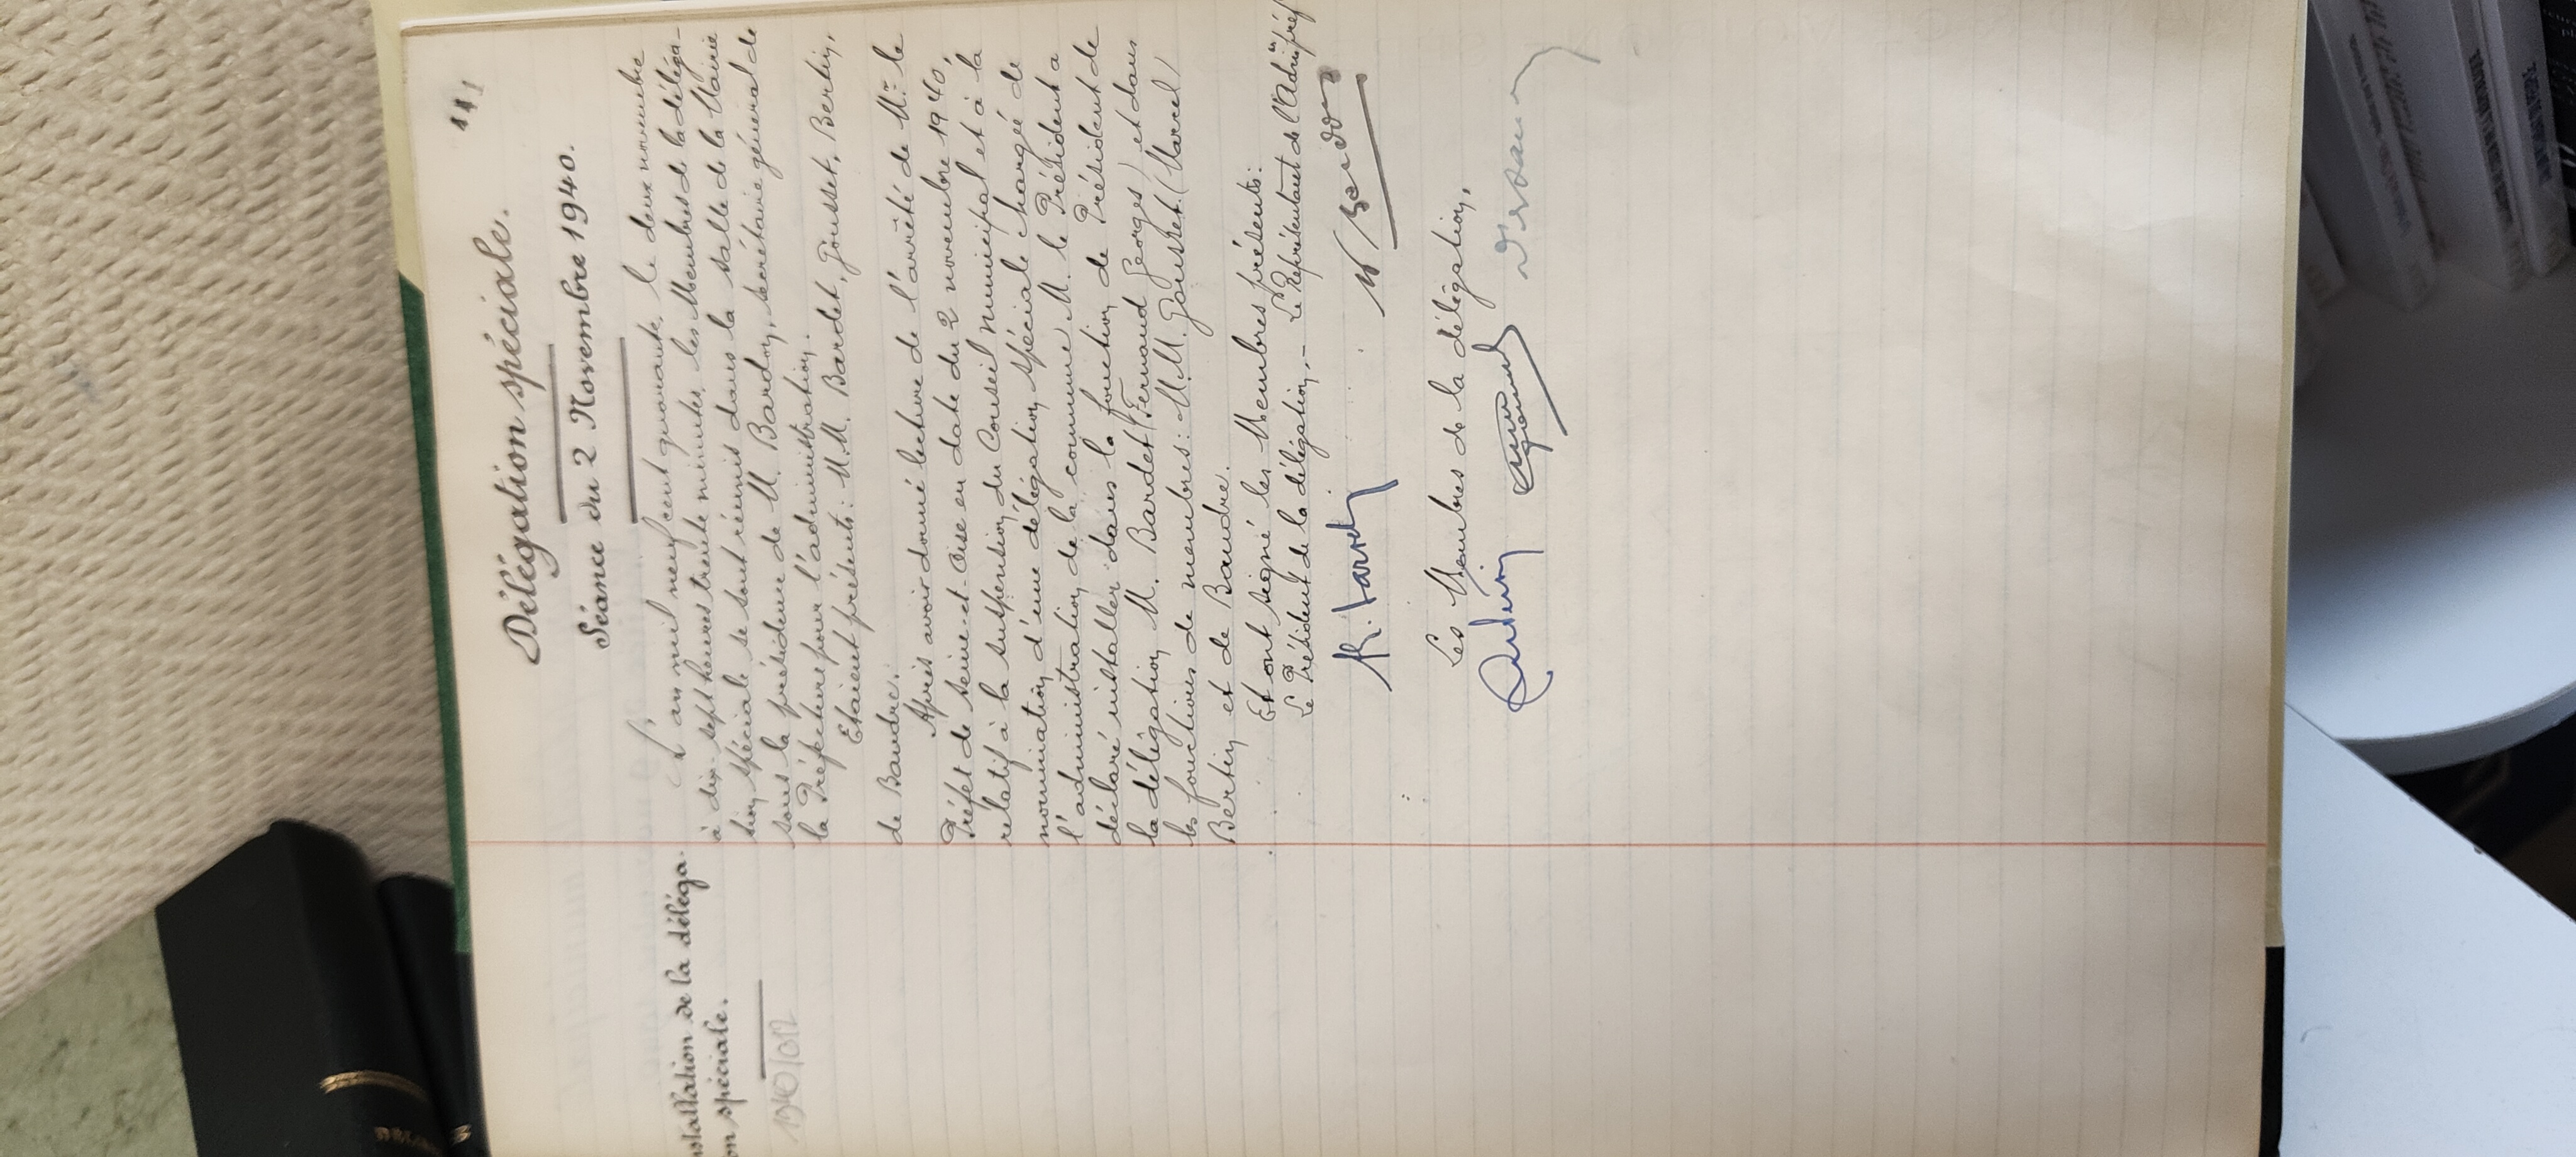 Délégation spéciale.
Séance du 2 Novembre 1940.
nstallation de la déléga-
on spéciale.
1940/012
L'an mil neuf cent quarante, le deux novembre
à dix-sept heures trente minutes, les Membres de la déléga-
tion spéciale se sont réunis dans la salle de la Mairie
sous la présidence de M. Bardon, secrétaire général de
la Préfecture pour l'administration.
Etaient présents: M.M. Bardet, Gousset, Bertin,
de Baudre.
Après avoir donné lecture de l'arrêté de Mr. le
Préfet de Seine-et-Oise en date du 2 novembre 1940,
relatif à la suspension du Conseil municipal et à la
nomination d'une délégation spéciale chargée de
l'administration de la commune M. le Président a
déclaré installer dans la fonction de Président de
la délégation M. Bardet (Fernand Georges) et dans
les fonctions de membres: M.M. Gousset (Marcel)
Bertin et de Baudre.
Et ont signé les Membres présents:
Le Président de la délégation,- Le Représentant de l'Admion préf
Les Membres de la délégation,